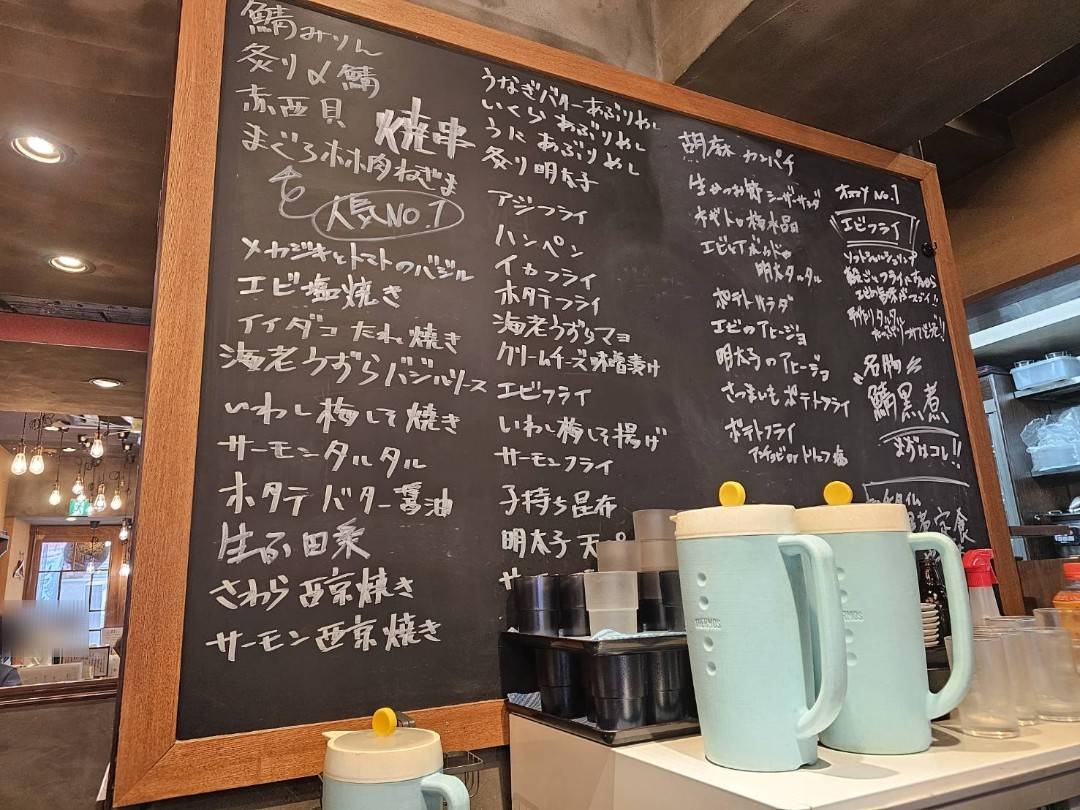 鯖みりん
炙り〆鯖
赤西貝
焼串
まぐろホホ肉ねぎま
人気No.1
メカジキとトマトのバジル
エビ塩焼き
イイダコ たれ焼き
海老うずらバジルソース
いわし梅しそ焼き
サーモンタルタル
ホタテバター醤油
生ふ田楽
さわら西京焼き
サーモン西京焼き
うなぎバターあぶりめし
いくらあぶりめし
うにあぶりめし
炙り明太子
アジフライ
ハンペン
イカフライ
ホタテフライ
海老うずらマヨ
クリームチーズ味噌漬け
エビフライ
いわし梅しそ揚げ
サーモンフライ
子持ち昆布
明太子天ぷ
や
胡麻カンパチ
生かつお節シーザーサラダ
ネギトロ梅水晶
エビとアボカドの
明太タルタル
ポテトサラダ
エビのアヒージョ
明太子のアヒージョ
さつまいもポテトフライ
ポテトフライ
アンチョビorトリュフ塩
No.1
エビフライ
ソフトシェルシュリンプ
殻ごとフライにすから
エビの旨味がスゴイ!!
手作りタルタル
たっぷりつけてどうぞ!!
名物
鯖黒煮
まずはコレ!!
定食
THERMOS
THERMOS